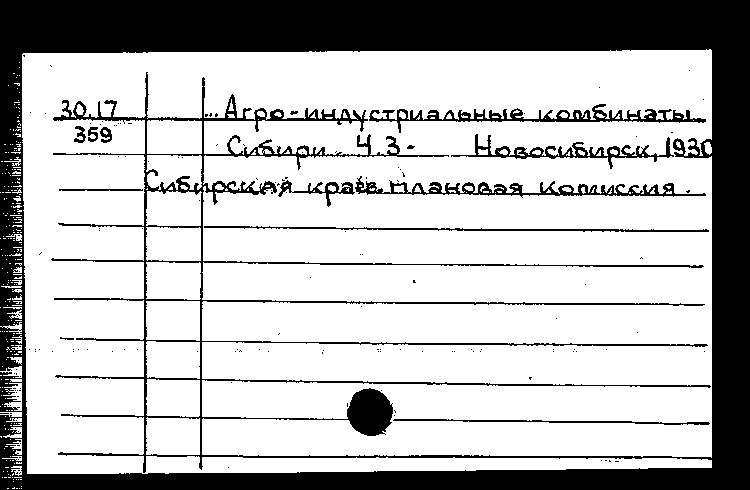 30.17 ... Агро-индустриальные комбинаты
359 Сибири. Ч.3- Новосибирск, 1930
Сибирская краев. плановая комиссия.